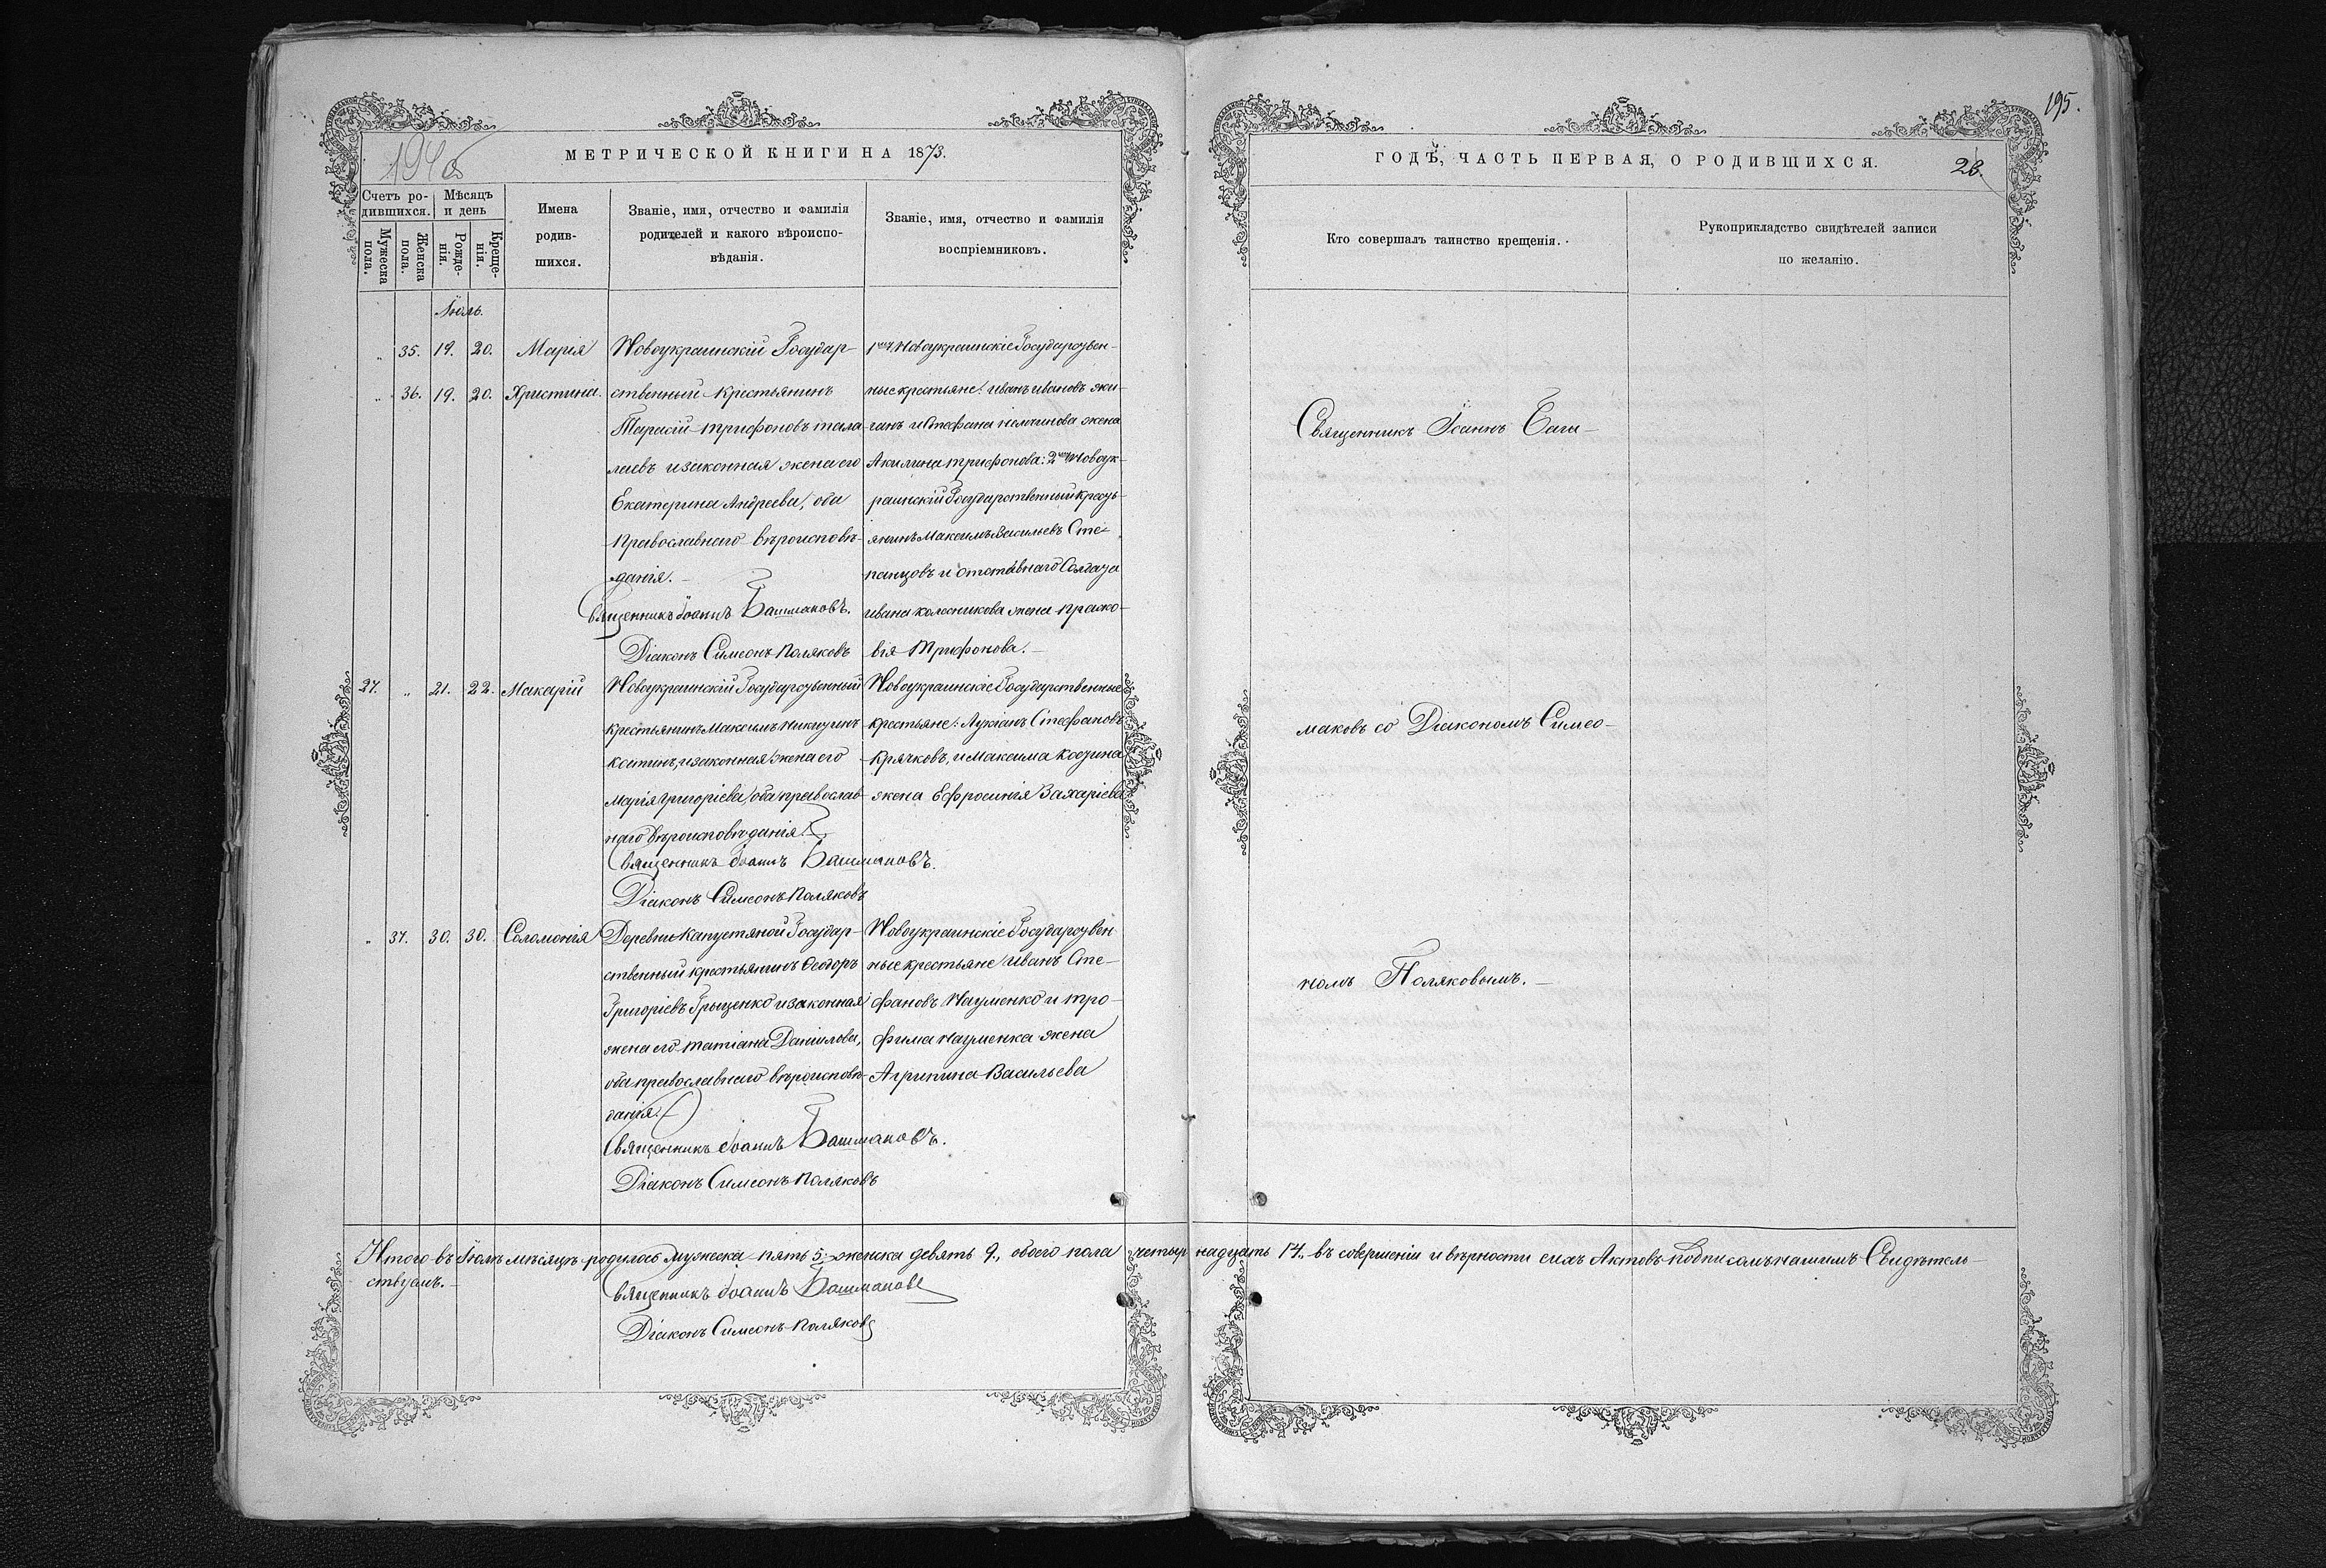 195.
194об
МЕТРИЧЕСКОЙ КНИГИ НА 1873.
Счетъ ро-
дившихся.
Мужеска
пола.
Женска
пола.
Мѣсяцъ
и день
Рожде-
нія.
Креще-
нія.
Имена
родив-
шихся.
Званіе, имя, отчество и фамилія
родителей и какого вѣроиспо-
вѣданія.
Званіе, имя, отчество и фамилія
воспріемниковъ.
Іюль.
„ 35. 19. 20. Марія
„ 36. 19. 20. Христина.
Новоукраинскій Государ-
ственный крестьянинъ
Тарасій Трифоновъ Тала
лаевъ и законная жена его
Екатерина Андреева, оба
Православнаго вѣроисповѣ-
данія.
Священникъ Іоаннъ Башмаковъ.
Діаконъ Симеонъ Поляковъ
1й, Новоукраинскіе Государствен-
ные крестьяне: Иванъ Ивановъ
и Стефана жена
Акилина Трифонова: 2й Новоук-
раинскій Государственный кресть-
янинъ Максимъ Васильевъ Сте-
панцовъ и отставнаго Солдата
Ивана Колесникова жена Праско-
вія Трифонова.
27. „ 21. 22. Макарій
Новоукраинскій Государственный
крестьянинъ Максимъ Никитинъ
Костинъ, и законная жена его
Марія Григоріева, оба православ-
наго вѣроисповѣданія.
Священникъ Іоаннъ Башмаковъ.
Діаконъ Симеонъ Поляковъ
Новоукраинскіе Государственные
крестьяне: Лукіанъ Стефановъ
Крячковъ, и Максима Костина
жена Ефросинія Захаріева
„ 37. 30. 30. Соломонія
Деревни Капустяной Государ-
ственный крестьянинъ Ѳеодоръ
Григоріевъ Грыценко и законная
жена его Татіана Даніилова,
оба православнаго вѣроисповѣ-
данія.
Священникъ Іоаннъ Башмаковъ.
Діаконъ Симеонъ Поляковъ
Новоукраинскіе Государствен
ные крестьяне Иванъ Сте-
фановъ Науменко и Тро-
фима Науменка жена
Агрипина Васильева
Итого въ Іюлѣ мѣсяцѣ родилось Мужеска пять 5. женска девять 9., обоего пола четырнадцать 14., въ совершеніи и вѣрности сихъ Актовъ подписомъ нашимъ Свидѣтель-
ствуемъ.
Священникъ Іоаннъ Башмаковъ
Діаконъ Симеонъ Поляковъ
ГОДЪ, ЧАСТЬ ПЕРВАЯ, О РОДИВШИХСЯ.
28.
Кто совершалъ таинство крещенія.
Рукоприкладство свидѣтелей записи
по желанію.
Священникъ Іоаннъ Баш-
маковъ со Діакономъ Симео-
номъ Поляковымъ.